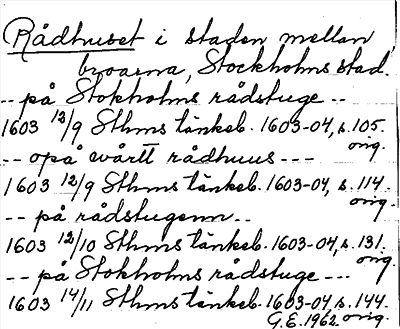 Rådhuset i staden mellan
broarna, Stockholms stad.
-- på Stokholms rådstuge --
1603 12/9 Sthms tänkeb. 1603-04, s. 105.
orig.
-- opå wårtt rådhuus ---
1603 12/9 Sthms tänkeb. 1603-04, s. 114.
orig.
-- på rådstugenn --
1603 12/10 Sthms tänkeb. 1603-04, s. 131.
orig.
-- på Stokholms rådstuge ---
1603 14/11 Sthms tänkeb. 1603-04, s. 144.
G.E. 1962. orig.